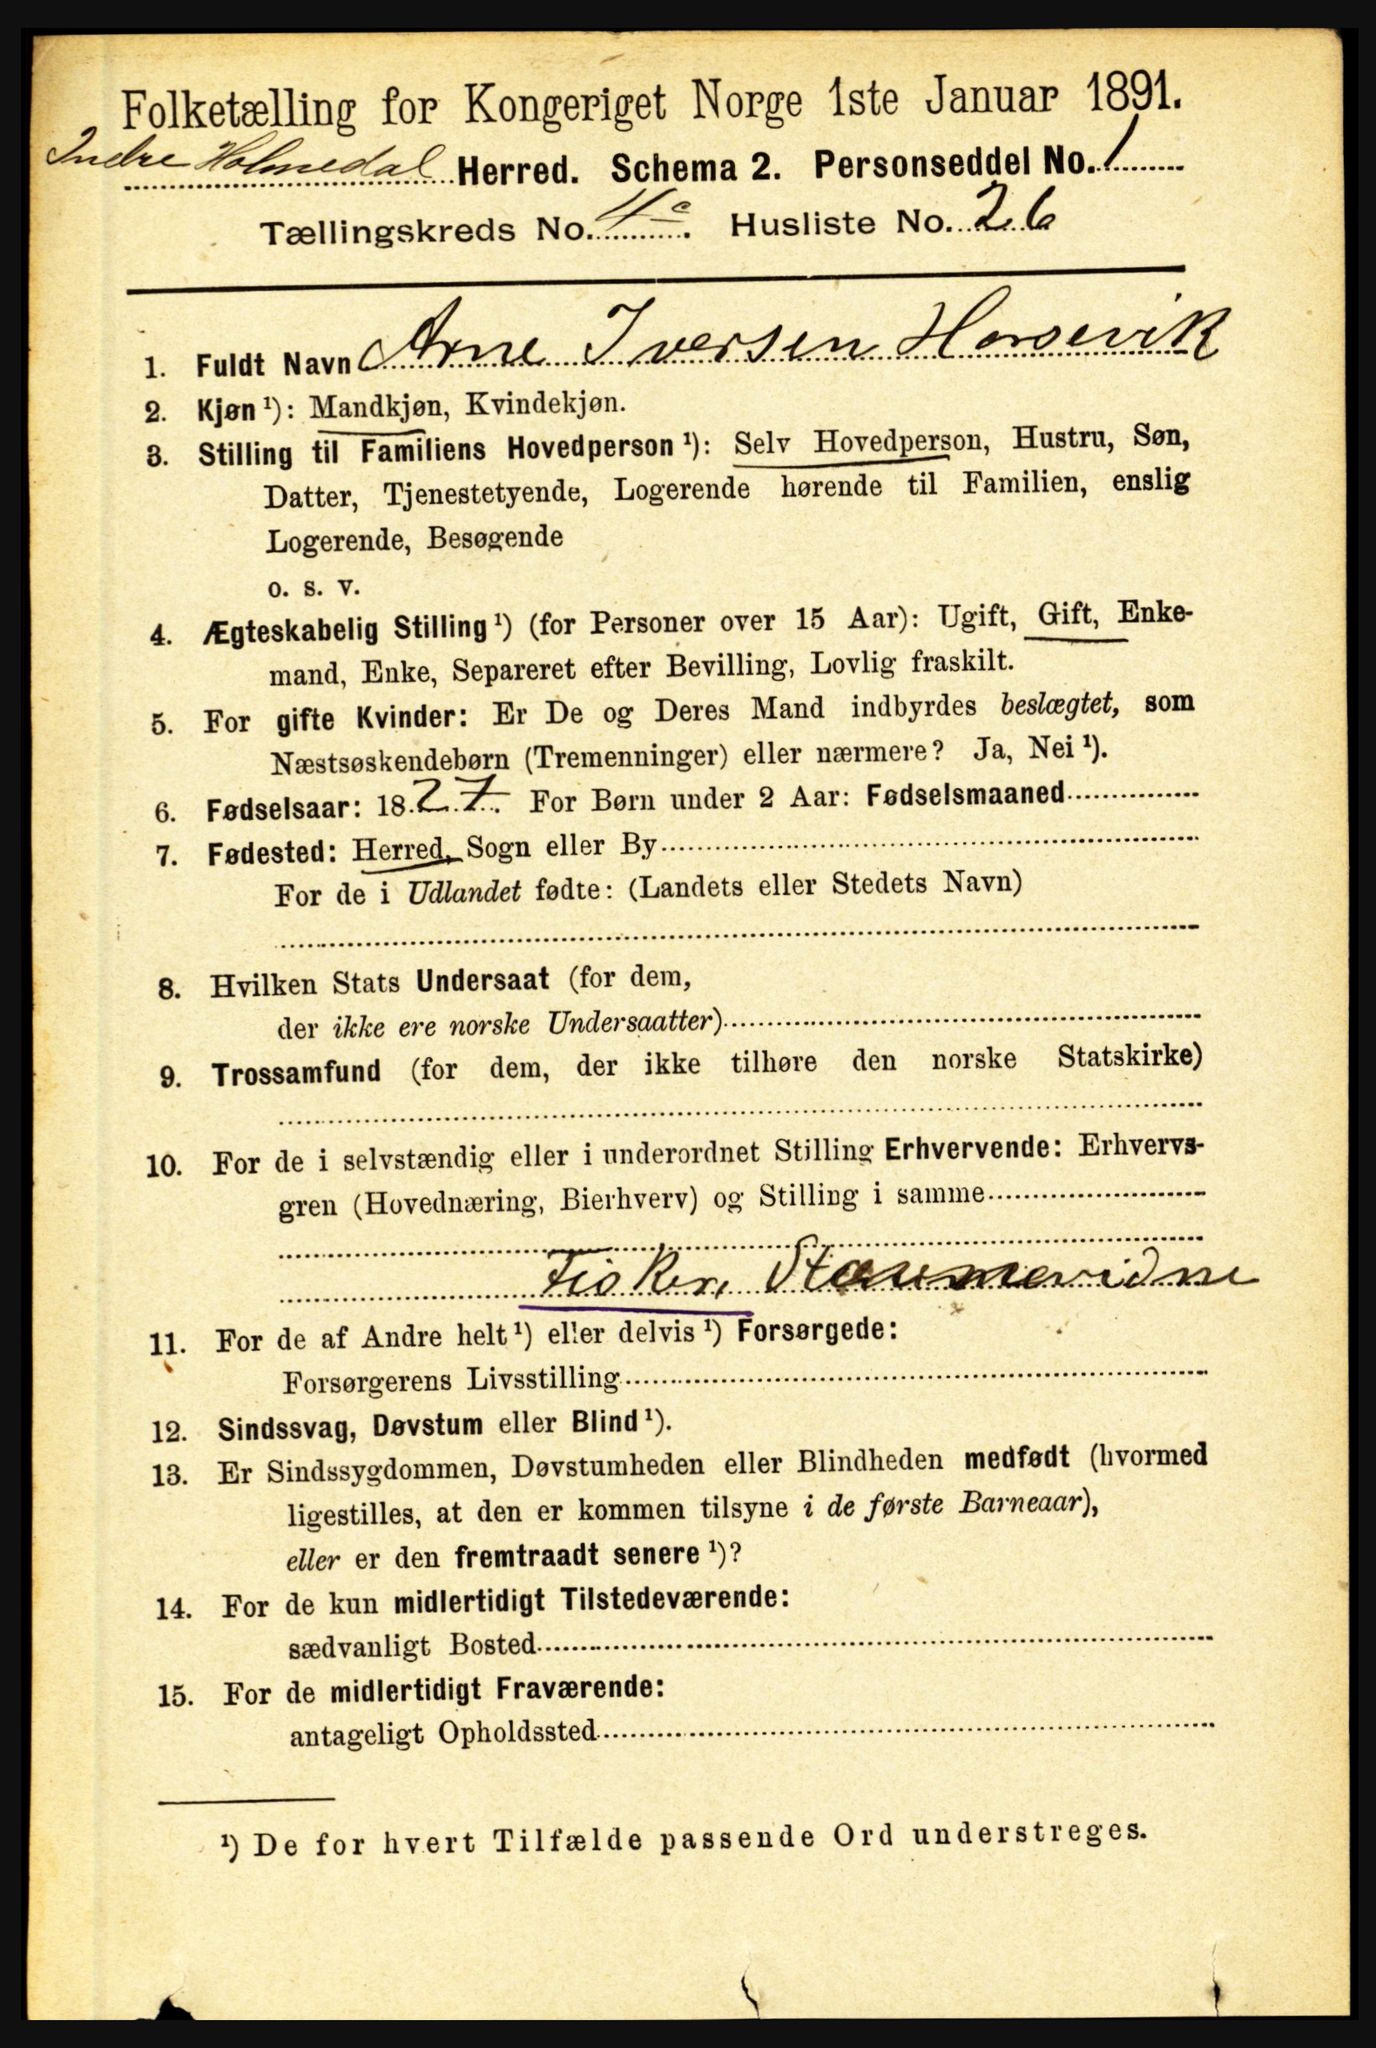 Folketælling for Kongeriget Norge 1ste Januar 1891.
Indre Holmedal Herred. Schema 2. Personseddel No. 1
Tællingskreds No. 4c. Husliste No. 26
1. Fuldt Navn Arne Iversen Horsevik
2. Kjøn ¹): Mandkjøn, Kvindekjøn.
3. Stilling til Familiens Hovedperson ¹): Selv Hovedperson, Hustru, Søn,
Datter, Tjenestetyende, Logerende hørende til Familien, enslig
Logerende, Besøgende
o. s. v.
4. Ægteskabelig Stilling ¹) (for Personer over 15 Aar): Ugift, Gift, Enke-
mand, Enke, Separeret efter Bevilling, Lovlig fraskilt.
5. For gifte Kvinder: Er De og Deres Mand indbyrdes beslægtet, som
Næstsøskendebørn (Tremenninger) eller nærmere? Ja, Nei ¹).
6. Fødselsaar: 1827. For Børn under 2 Aar: Fødselsmaaned
7. Fødested: Herred, Sogn eller By
For de i Udlandet fødte: (Landets eller Stedets Navn)
8. Hvilken Stats Undersaat (for dem,
der ikke ere norske Undersaatter)
9. Trossamfund (for dem, der ikke tilhøre den norske Statskirke)
10. For de i selvstændig eller i underordnet Stilling Erhvervende: Erhvervs-
gren (Hovednæring, Bierhverv) og Stilling i samme
Fisker,
11. For de af Andre helt ¹) eller delvis ¹) Forsørgede:
Forsørgerens Livsstilling
12. Sindssvag, Døvstum eller Blind ¹).
13. Er Sindssygdommen, Døvstumheden eller Blindheden medfødt (hvormed
ligestilles, at den er kommen tilsyne i de første Barneaar),
eller er den fremtraadt senere ¹)?
14. For de kun midlertidigt Tilstedeværende:
sædvanligt Bosted
15. For de midlertidigt Fraværende:
antageligt Opholdssted
¹) De for hvert Tilfælde passende Ord understreges.